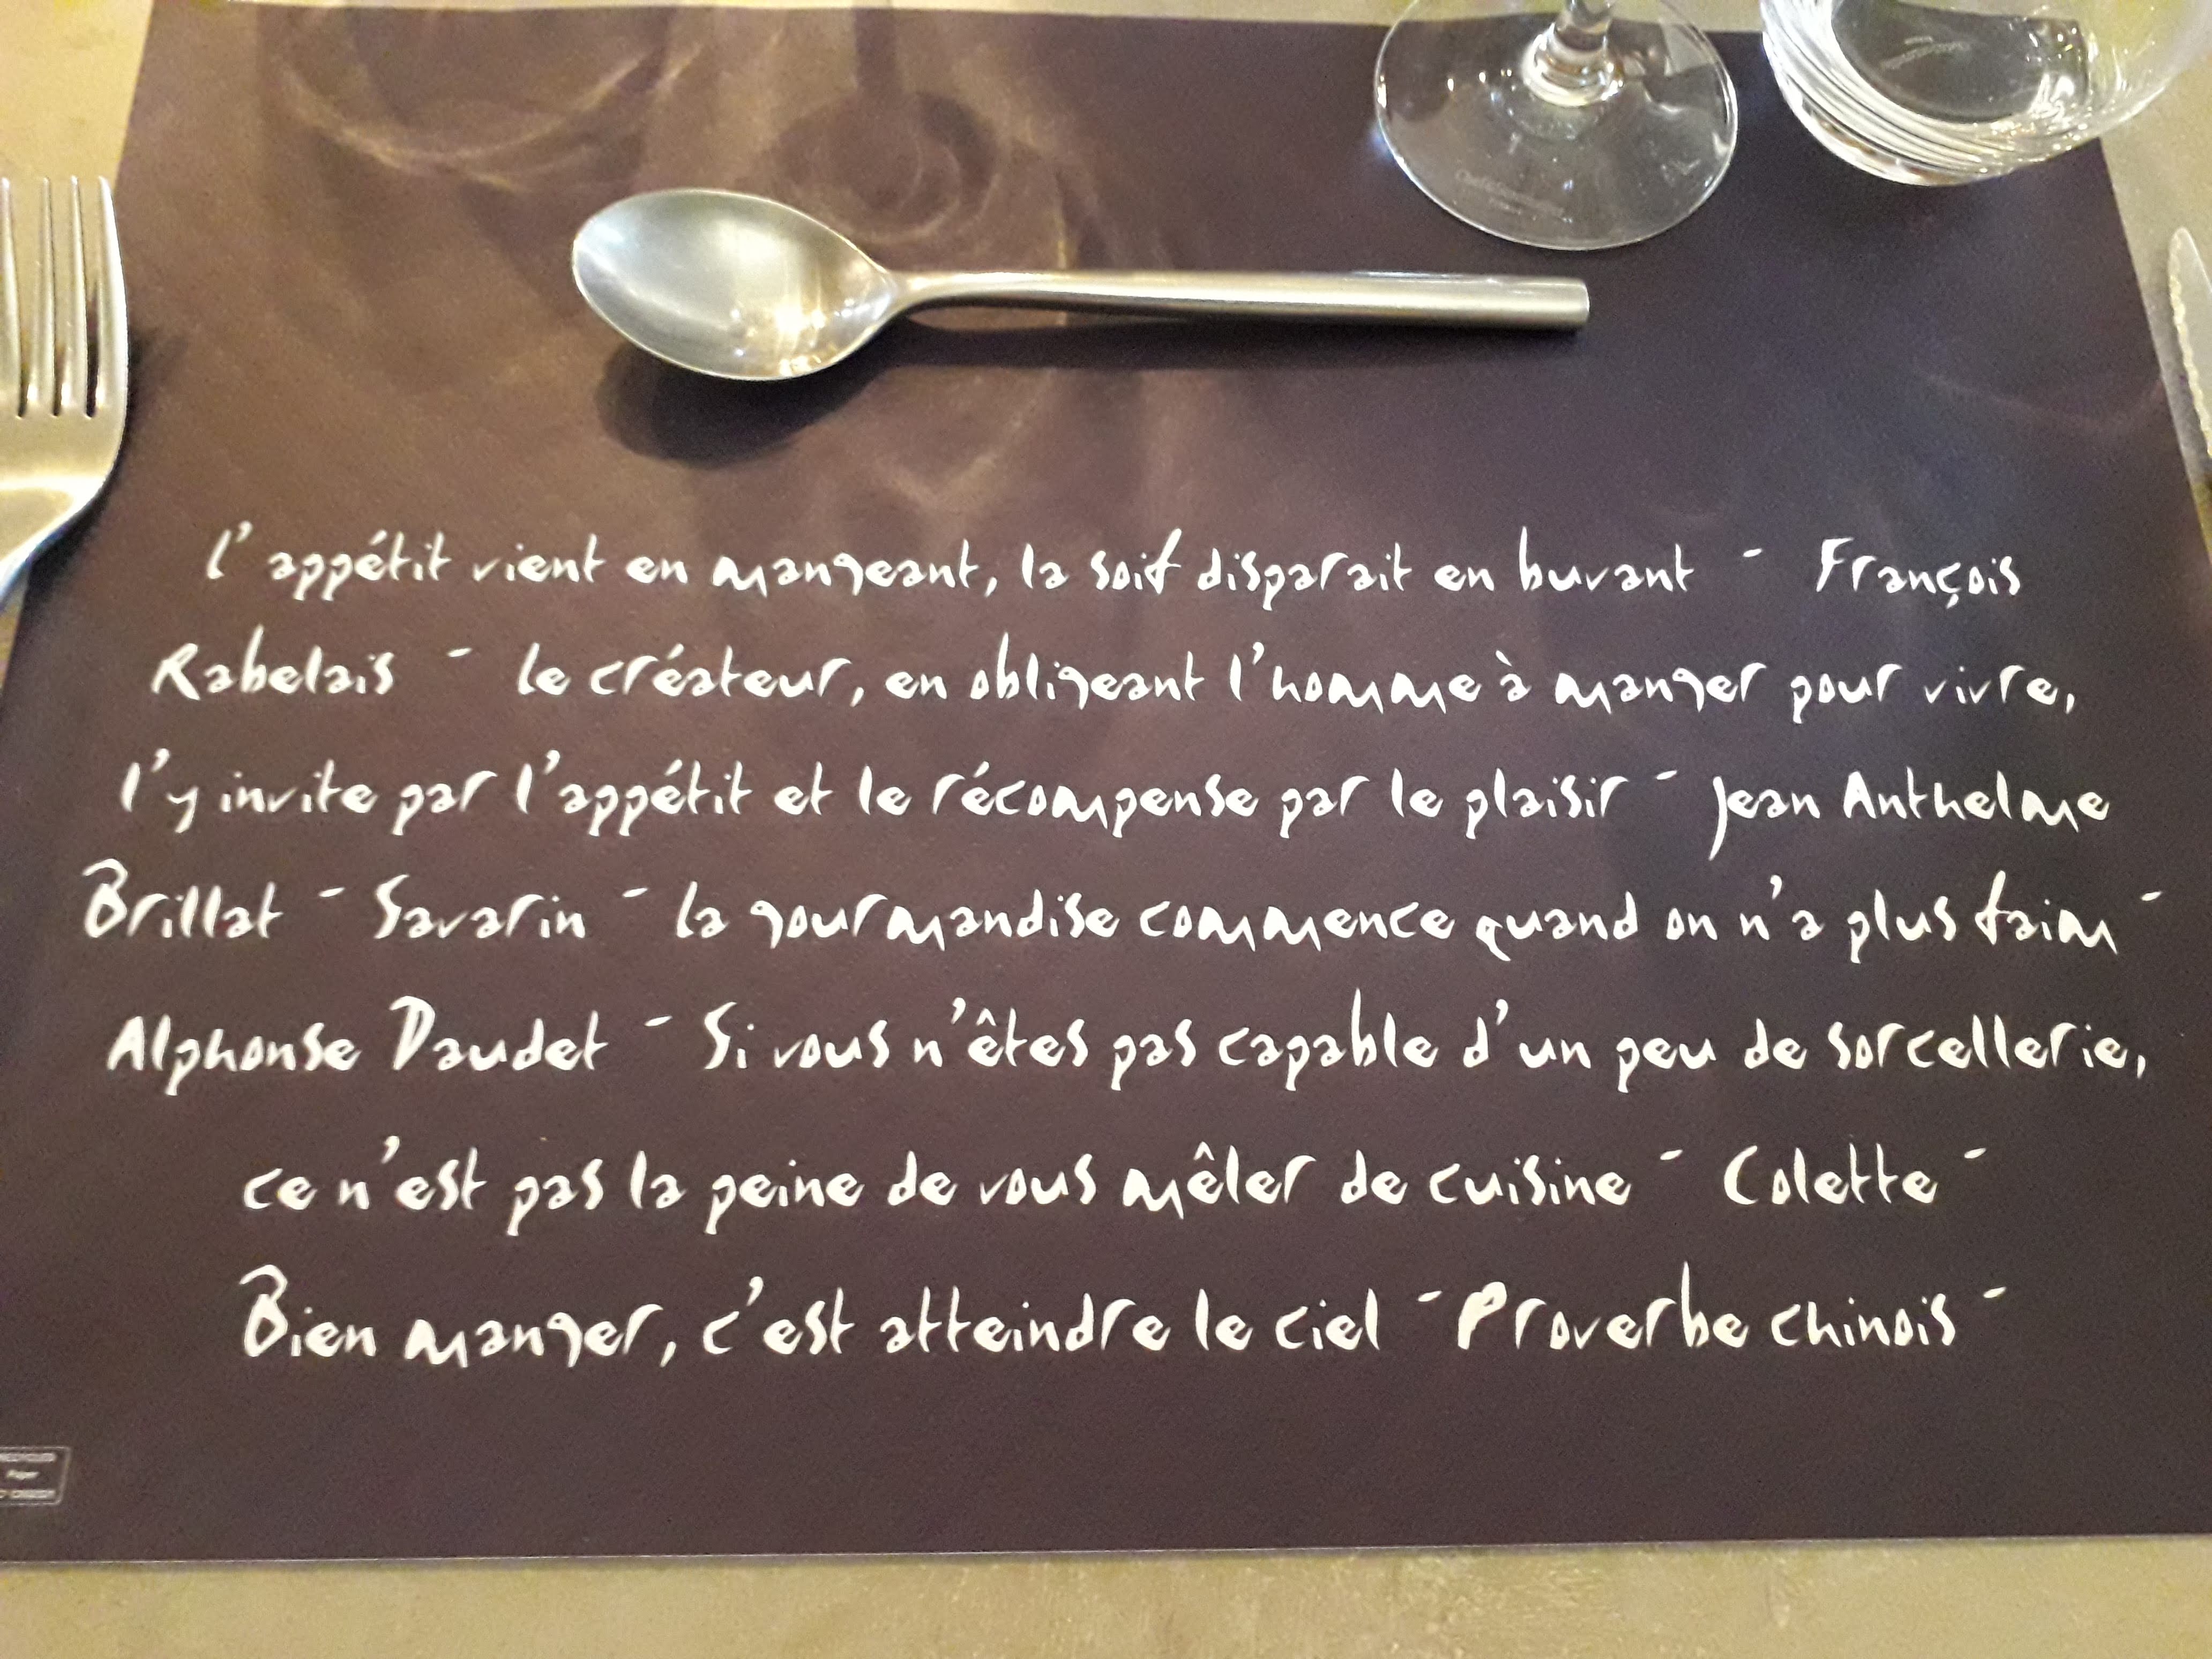 l'appétit vient en mangeant, la soif disparait en buvant - François
Rabelais - le créateur, en obligeant l'homme à manger pour vivre,
l'y invite par l'appétit et le récompense par le plaisir - Jean Anthelme
Brillat - Savarin - la gourmandise commence quand on n'a plus faim -
Alphonse Daudet - Si vous n'êtes pas capable d'un peu de sorcellerie,
ce n'est pas la peine de vous mêler de cuisine - Colette -
Bien manger, c'est atteindre le ciel - Proverbe chinois -